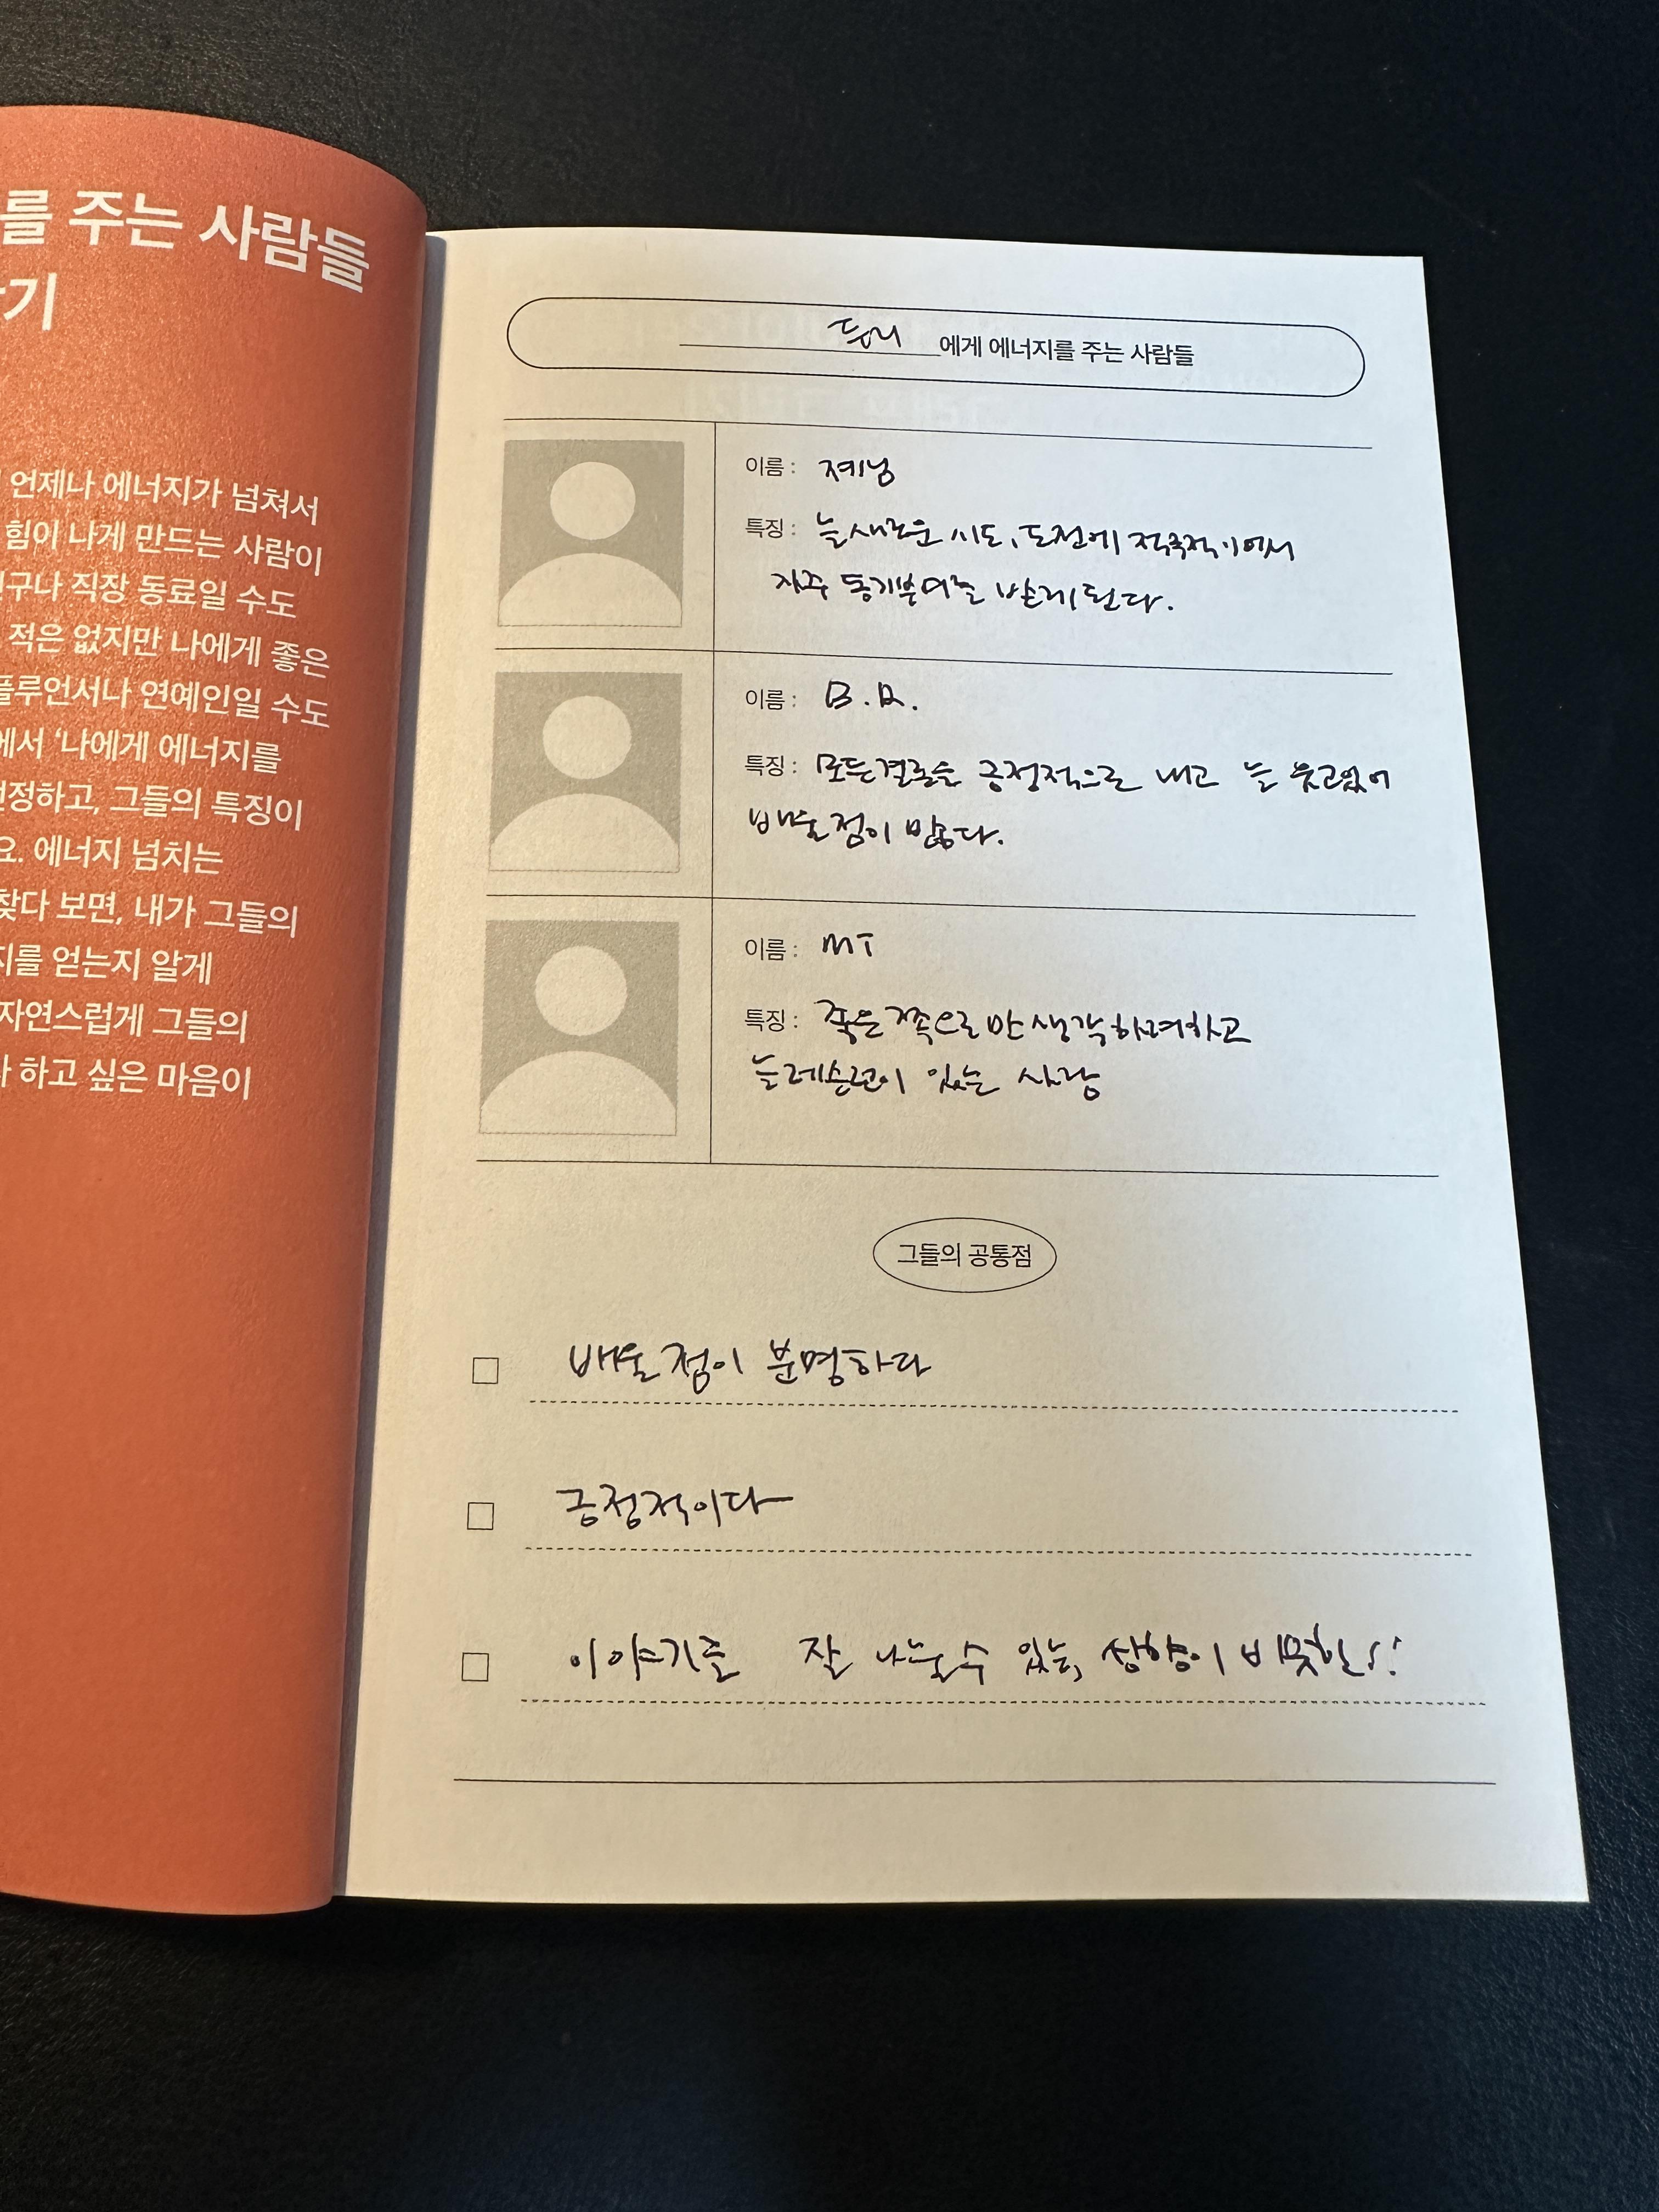 를 주는 사람들
기
언제나 에너지가 넘쳐서
힘이 나게 만드는 사람이
직장 동료일 수도
적은 없지만 나에게 좋은
플루언서나 연예인일 수도
에서 ‘나에게 에너지를
선정하고, 그들의 특징이
요. 에너지 넘치는
찾다 보면, 내가 그들의
지를 얻는지 알게
자연스럽게 그들의
하고 싶은 마음이
에게 에너지를 주는 사람들
이름 : 제닝
특징 : 늘 새로운 시도, 도전에 적극적이어서
자주 동기부여를 받게 된다.
이름 : B.R.
특징 : 모든 결론을 긍정적으로 내고 늘 웃고있어
배울점이 많다.
이름 : MT
특징 : 좋은 쪽으로만 생각하려하고
늘 레슨런이 있는 사람
그들의 공통점
배울 점이 분명하다
긍정적이다
이야기를 잘 나눌 수 있는, 성향이 비슷한